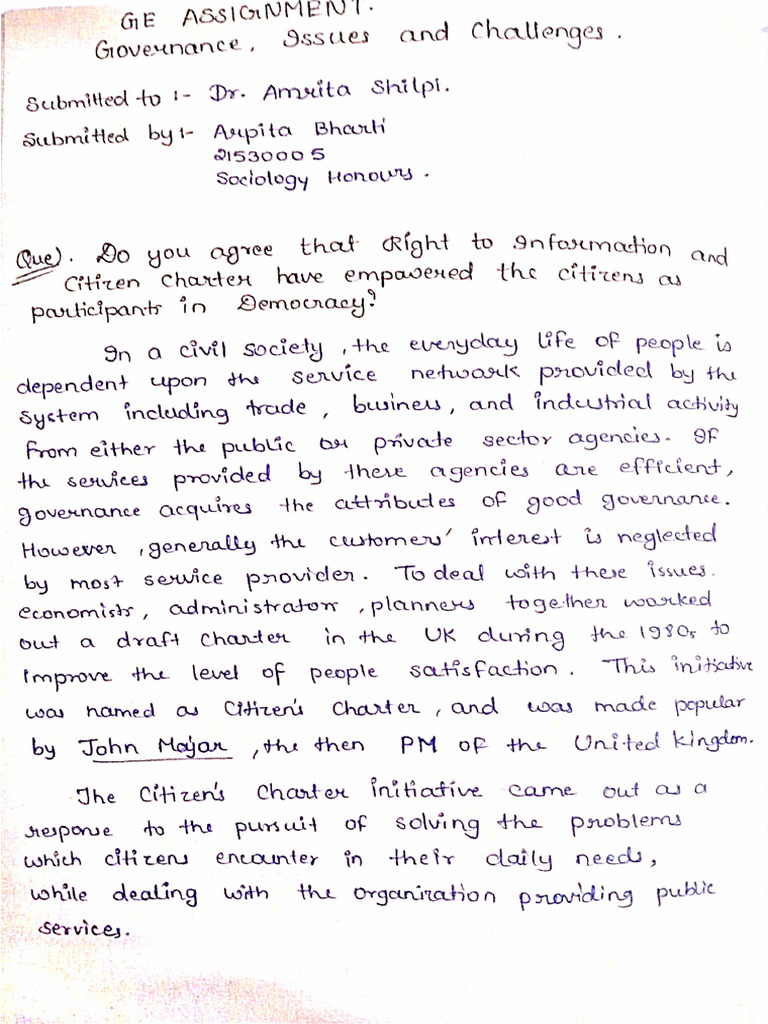 GE ASSIGNMENT.
Governance, Issues and Challenges.
Submitted to :- Dr. Amrita Shilpi.
Submitted by :- Arpita Bharti
21530005
Sociology Honours.
Que). Do you agree that Right to Information and
Citizen Charter have empowered the citizens as
participants in Democracy?
In a civil society, the everyday life of people is
dependent upon the service network provided by the
system including trade, business, and industrial activity
from either the public or private sector agencies. If
the services provided by these agencies are efficient,
governance acquires the attributes of good governance.
However, generally the customers' interest is neglected
by most service provider. To deal with these issues.
economists, administrators, planners together worked
out a draft charter in the UK during the 1980s to
improve the level of people satisfaction. This initiative
was named as Citizen's Charter, and was made popular
by John Major, the then PM of the United Kingdom.
The Citizen's Charter initiative came out as a
response to the pursuit of solving the problems
which citizens encounter in their daily needs,
while dealing with the organization providing public
services.